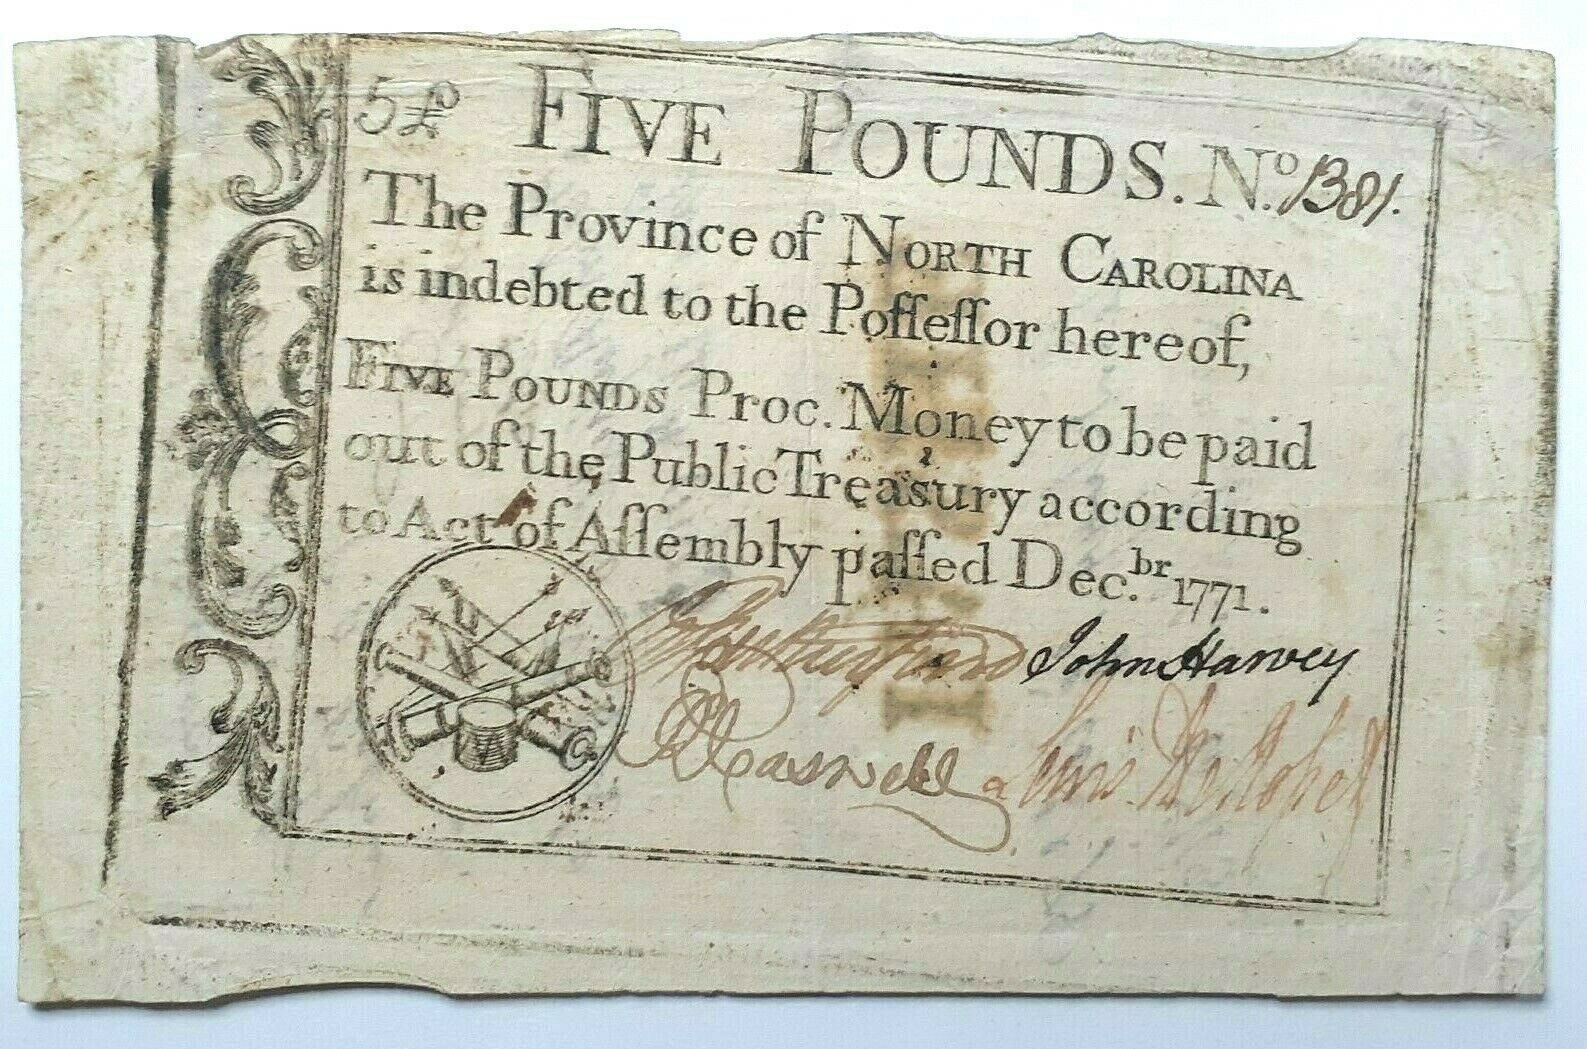 5£ FIVE POUNDS. No. 1381.
The Province of NORTH CAROLINA
is indebted to the Poſſeſſor hereof,
FIVE POUNDS Proc. Money to be paid
out of the Public Treasury according
to Act of Aſſembly paſſed Dec.br 1771.
John Rutherfurd John Harvey
RCaswell Lewis